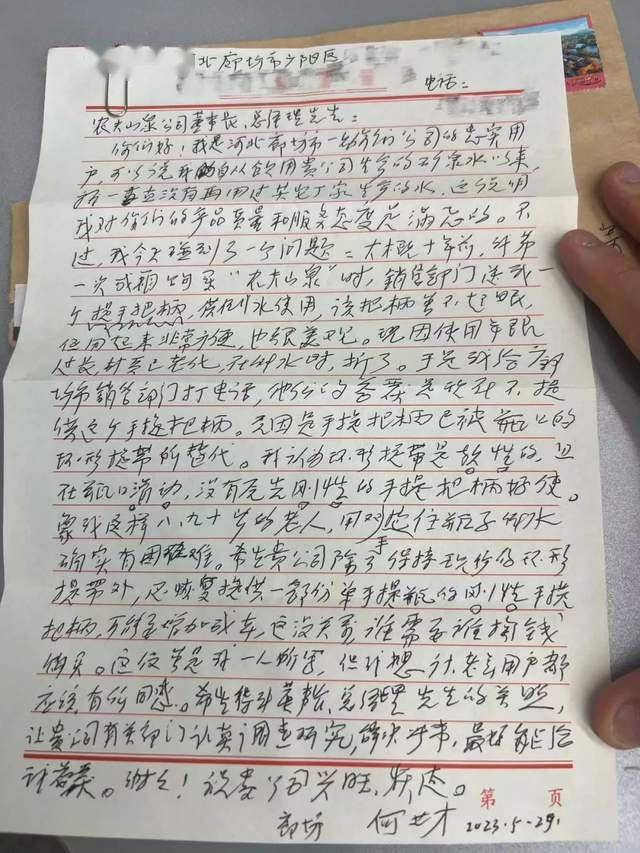 北廊坊市广阳区
电话：
农夫山泉公司董事长、总经理先生：
你们好，我是河北廊坊市一名你们公司的忠实用
户，可以说 自从饮用贵公司生产的矿泉水以来，
一直没有再用过其它厂家生产的水，这说明
我对你们的产品质量和服务态度是满意的。不
过，我今天碰到了一个问题：大概十年前，我第
一次成箱购买“农夫山泉”时，销售部门送我一
个提手把柄，供倒水使用，该把柄 不起眼，
但用起来非常方便，也很美观。现因使用年限
过长，材质已老化，在倒水时，折了。于是我给廊
坊市销售部门打电话，他们的答案是 不提
供这个手提把柄。原因是手提把柄已被瓶口的
环形提带所替代。我认为环形提带是软性的，且
在瓶口滑动，没有原先刚性的手提把柄好使。
象我这样八、九十岁的老人，用双手 往瓶子倒水
确实有困难。希望贵公司除了保持现份的环形
提带外，还恢复提供一部份单手提瓶的刚性手提
把柄，可能会增加成本，这没关系，谁需要谁掏钱
购买。这仅是我一人 ，但我想， 老年用户都
应该有所同感。希望得到董事长、总经理先生的关照，
让贵公司有关部门认真调查研究， ，最好能给
我答复。谢谢！祝贵公司兴旺、发达。
廊坊 何世才 2023.5.29.
第 页